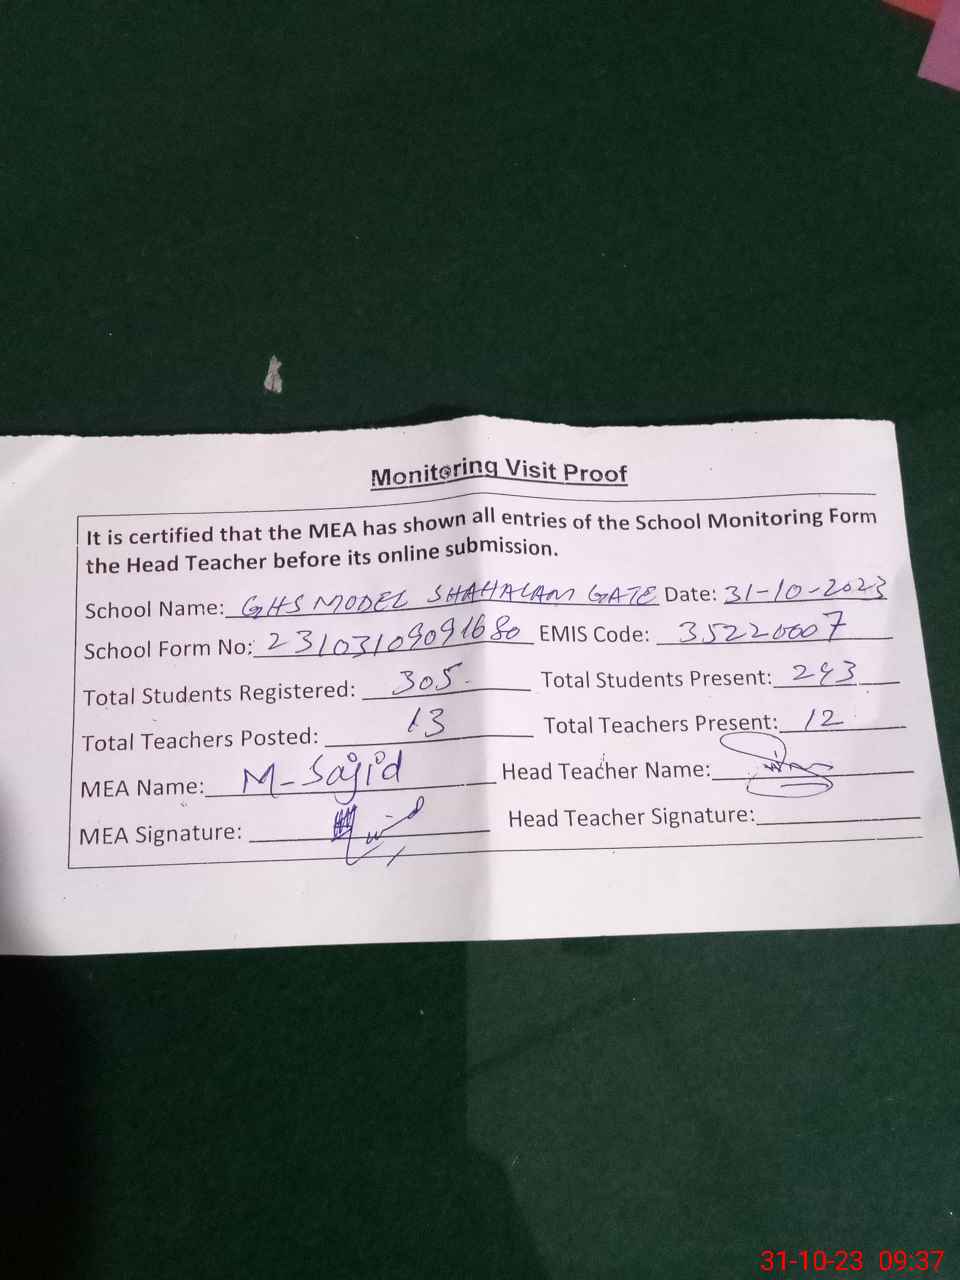 Monitoring Visit Proof
It is certified that the MEA has shown all entries of the School Monitoring Form
the Head Teacher before its online submission.
School Name: GHS MODEL SHAHALAM GATE Date: 31-10-2023
School Form No: 23103109091680 EMIS Code: 35220007
Total Students Registered: 305 Total Students Present: 243
Total Teachers Posted: 13 Total Teachers Present: 12
MEA Name: M-Sajid Head Teacher Name:
MEA Signature: Head Teacher Signature:
31-10-23 09:37